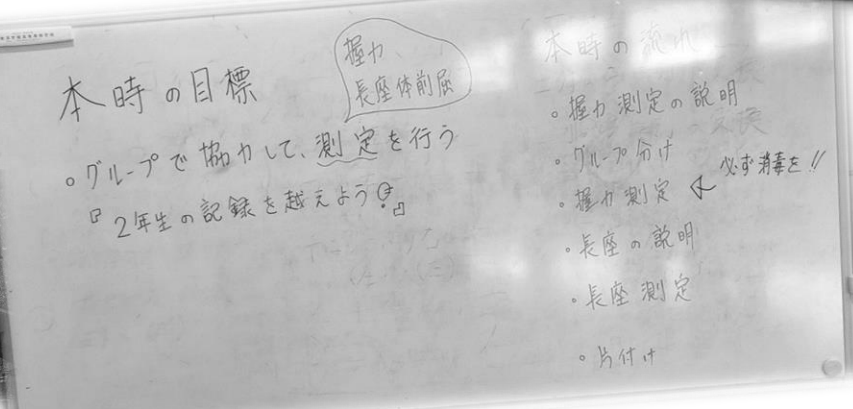 本時の目標
握力、
長座体前屈
。グループで協力して、測定を行う
『2年生の記録を越えよう!』
本時の流れ
。握力測定の説明
。グループ分け
。握力測定
必ず消毒を!!
。長座の説明
。長座測定
。片付け